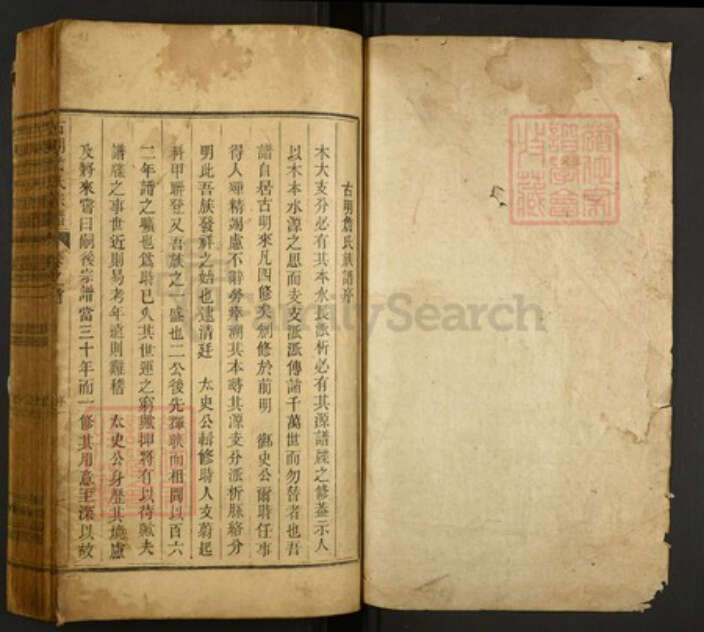 古明詹氏族譜序
木大支分必有其本水長派析必有其源譜牒之修蓋示人
以木本水源之思而支支派派傳諸千萬世而勿替者也吾
譜自居古明來凡四修矣創修於前明 御史公爾時任事
得人殫精竭慮不辭勞瘁溯其本尋其源支分派析脈絡分
明此吾族發祥之始也逮清廷 太史公輯修時人文蔚起
科甲聯登又吾族之一盛也二公後先輝映而相閱以百六
二年譜之曠也為時已久其世運之窮歟抑將有以待歟夫
譜牒之事世近則易考年湮則難稽 太史公身歷其境慮
及將來嘗曰嗣後宗譜當三十年而一修其用意至深以故
FamilySearch